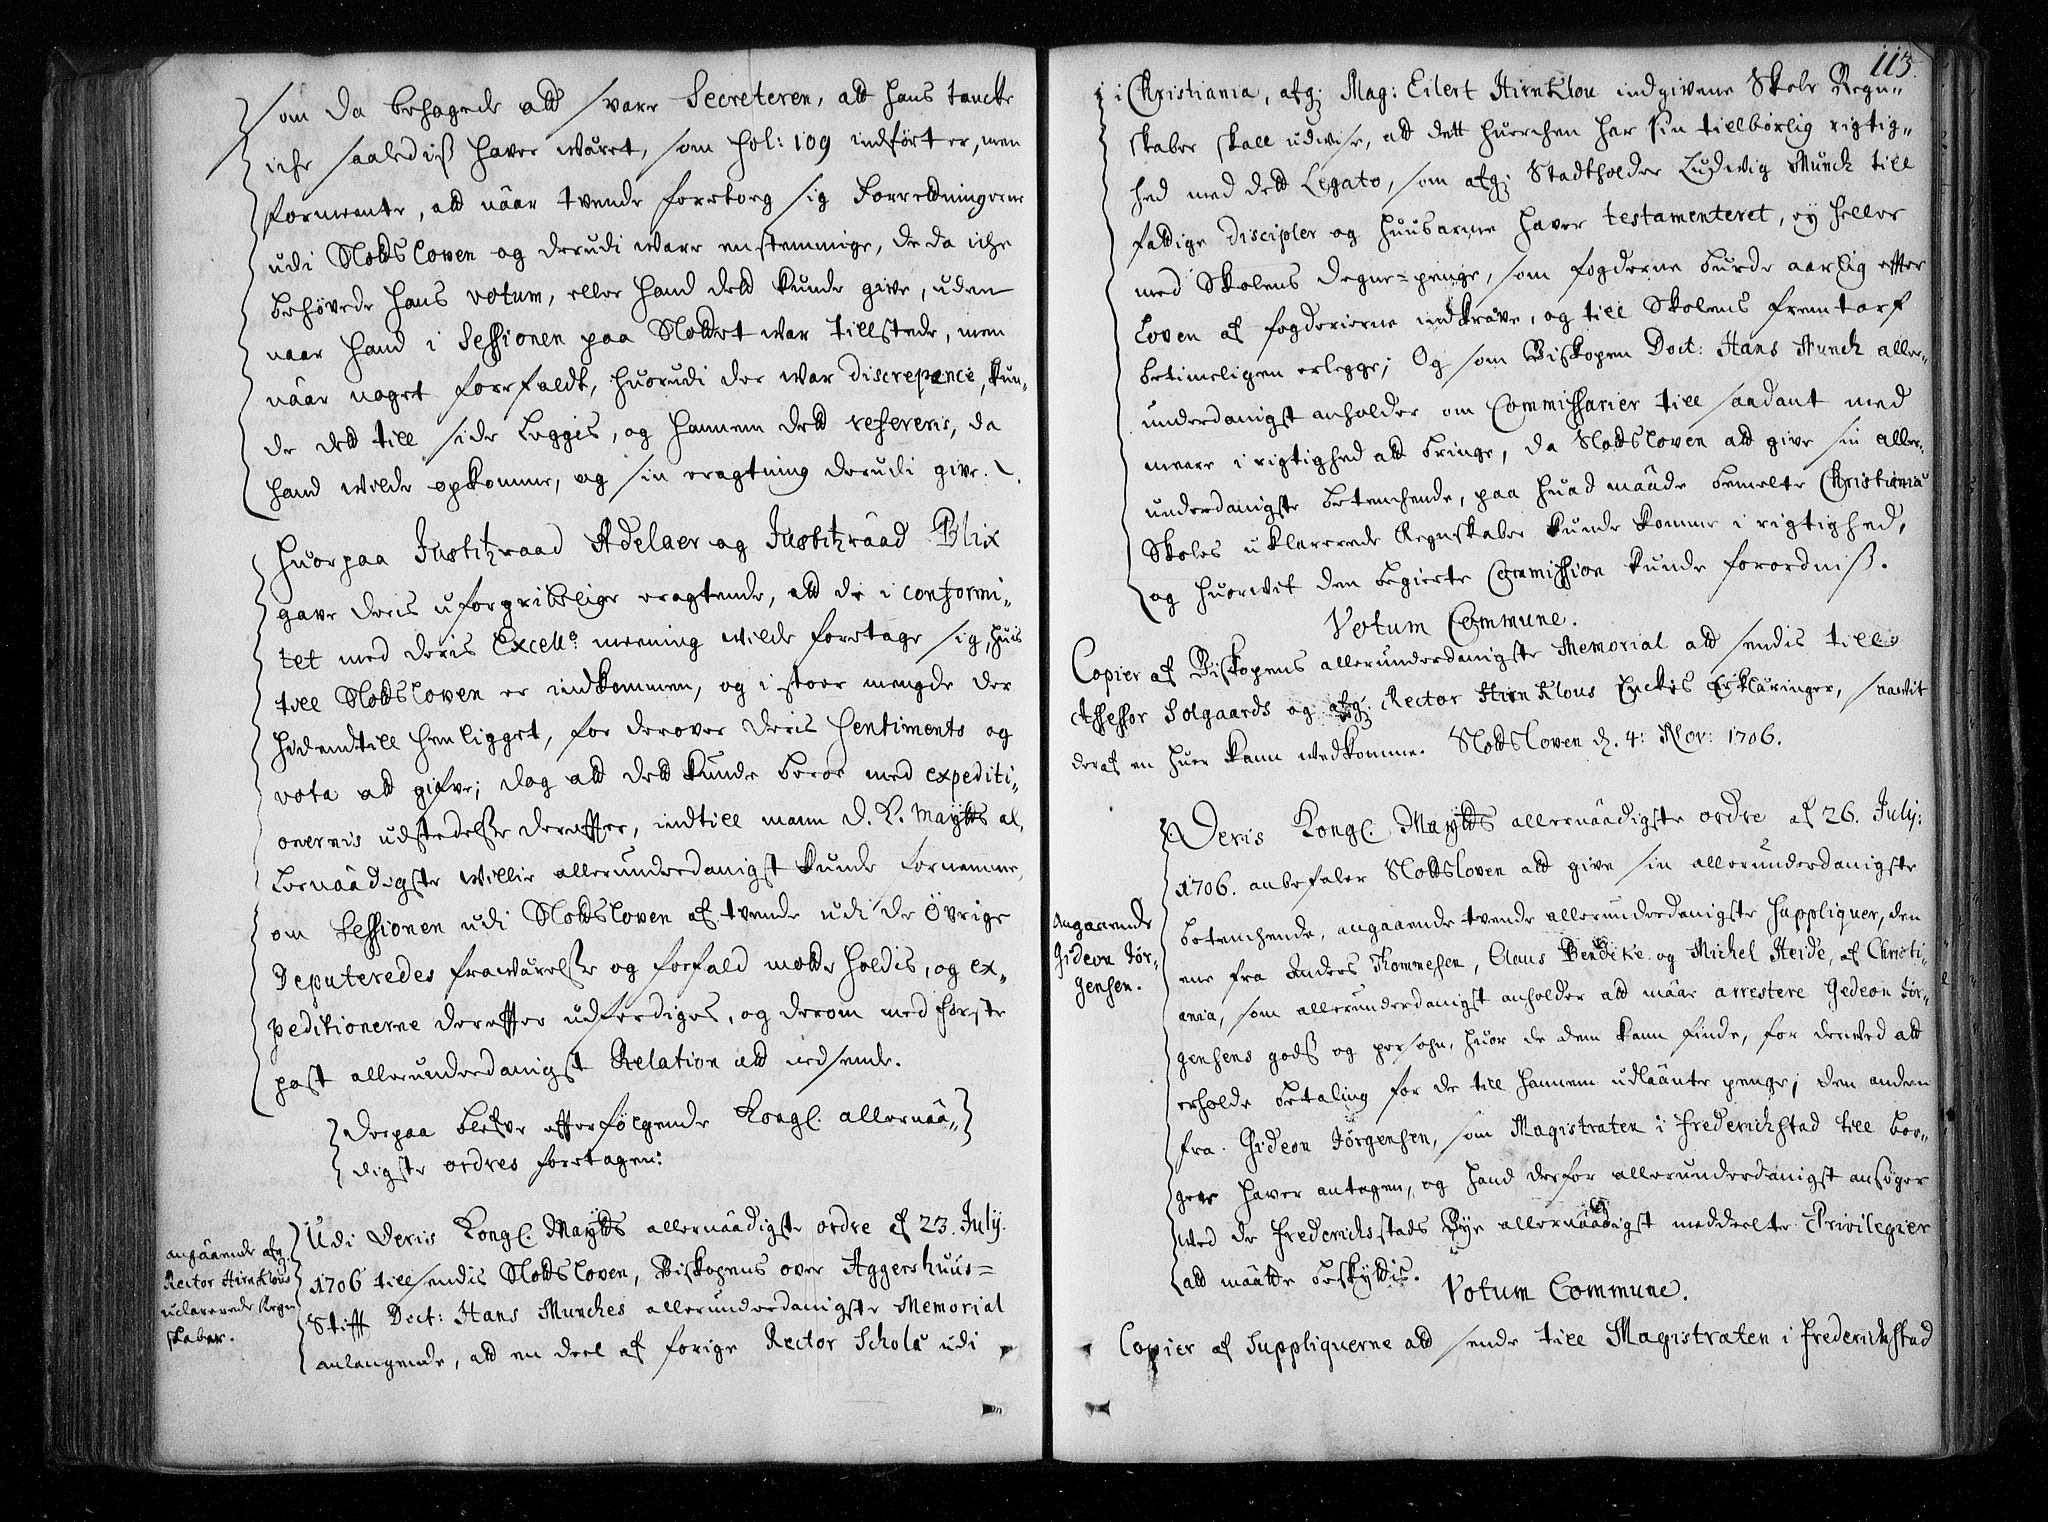 som da behagede att svare Secreteren, att hans tancke
iche saalediß haver wäret, som fol: 109 indført er, men
formeente, att näar tvende foretoeg sig Forretningerne
udi Slottsloven og derudi ware enstemmige, de da iche
behøvede hans votum, eller hand dett kunde give, uden
naar hand i Sessionen paa Slottet war tillstede, men
näar noget forefaldt, huorudi der war discrepance, kun„
de dett till side leggis, og hannem dett refereris, da
hand wilde opkomme, og sin eragtning derudi give.
Huorpaa Justitzraad Adelaer og Justitzrååd Blix
gave deris uforgribelige eragtende, att de i conformi„
tet med deris Excell: meening wilde foretage sig, huis
till Slottsloven er indkommen, og i stoor mengde der
hidendtill henligget, for derover deris Sentiments og
vota att gifve; dog att dett kunde beroe med expediti„
onernis udstedelse dereffter, indtill mann D. K. Maÿtts al„
lernäädigste willie allerunderdanigst kunde fornemme,
om Sessionen udi Slottsloven af tvende udi de Øvrige
Deputeredes frawärelse og forfald motte holdis, og ex„
peditionerne dereffter udferdiges, og derom med første
post allerunderdanigst Relation att nedsende.
Derpaa blefve effterfølgende Kongl. allernää„
digste ordres foretagen:
angäaende afg.
Rector Hirnklous
uclarerede Regn
skaber.
Udi Deris Kongl. Maÿtts allernäädigste ordre af 23. Julÿ.
1706 till sendis Slottsloven, Biskopens over Aggershuus=
Stifft Doct: Hans Munches allerunderdanigste Memorial
anlangende, att en deel af forige Rector Scholæ udi
113.
i Christiania, afg: Mag: Eilert Hirnklou indgivene Skole Regn„
skaber skall udwise, att dett huerchen har sin tillbørlig rigtig„
hed med dett Legato, som afg: Stadtholder Ludwig Munck till
fattige Discipler og huusarme haver testamenteret, eÿ heller
med Skolens degne=penge, som fogderne burde aarlig effter
Loven af fogderierne indkräve, og till Skolens fremtarf
betimeligen erlegge; Og som Biskopen Doct: Hans Munch aller„
underdanigst anholder om Commissarier till saadant med
meere i rigtighed att bringe, da Slottsloven att give sin aller„
underdanigste betenchende, paa huad maade bemelte Christiania
Skoles uklarerede Regnskaber kunde komme i rigtighed,
og huorwit den begierte Commission kunde forordniß.
Votum Commune.
Copier af Biskopens allerunderdanigste Memorial att sendis till
Assessor Solgaards og afg. Rector Hirnklous Enckis Erklæringer, saawit
deraf en huer kann wedkomme. Slottsloven d. 4: Nov: 1706.
Angaaende
Gideon Jør„
gensen.
Deris Kongl. Maÿtts allernäädigste ordre af 26. Julÿ:
1706. anbefaler Slottsloven att give sin allerunderdanigste
betenchende, angaaende tvende allerunderdanigste Suppliquer, den
ene fra Anders Thommesen, Claus Bendeke og Michel Heide, af Christi„
ania, som allerunderdanigst anholder att mäae arrestere Gedeon Jør„
gensens gods og persohn, huor de dem kann finde, for derwed att
erholde betaling for de till hannem udläante penge; den anden
fra Gideon Jørgensen, som Magistraten i Frederichstad till bor„
gere haver antagen, og hand derfor allerunderdanigst ansøger
wed de Frederichsstads Bÿe allernäädigst meddeelte Privilegier
att määtte beskyttis.
Votum Commune.
Copier af Suppliquerne att sende till Magistraten i Frederichstad